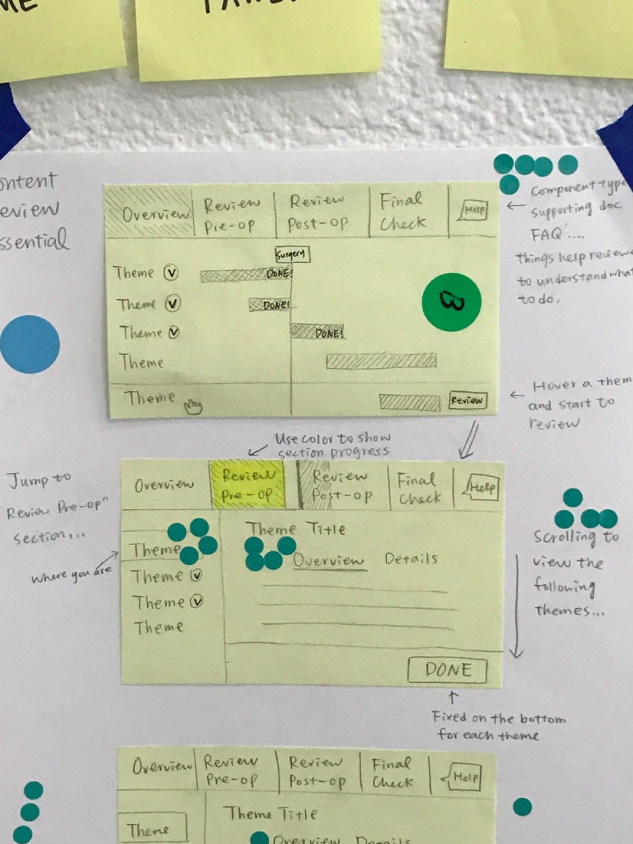 ME
Content
Review
Essential
Overview
Review
Pre-op
Review
Post-op
Final
Check
Help
Surgery
Theme V
DONE!
Theme V
DONE!
Theme V
DONE!
Theme
Theme
Review
B
Component type
supporting doc
FAQ....
things help review
to understand what
to do.
Hover a them
and start to
review
Use color to show
section progress
Jump to
Review Pre-op"
section...
where you are
Overview
Review
Pre-op
Review
Post-op
Final
Check
Help
Theme
Theme V
Theme V
Theme
Theme Title
Overview Details
DONE
Scrolling to
view the
following
themes...
Fixed on the bottom
for each theme
Overview
Review
Pre-op
Review
Post-op
Final
Check
Help
Theme
Theme Title
Overview Details